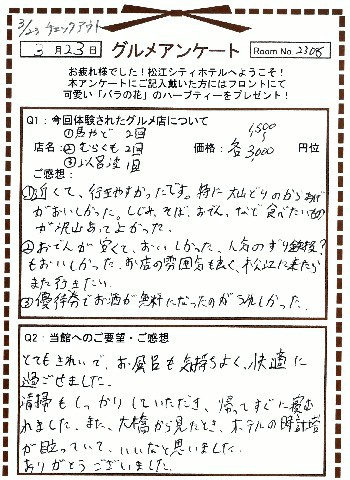 3/23 チェックアウト
3月23日 グルメアンケート Room No. 2308
お疲れ様でした！松江シティホテルへようこそ！
本アンケートにご記入戴いた方にはフロントにて
可愛い「バラの花」のハーブティーをプレゼント！
Q1：今回体験されたグルメ店について
①馬やど 2回
店名：②むらくも 2回 価格：各 1,500〜3,000 円位
③ 1回
ご感想：
①近くて、行きやすかったです。特に大山どりのからあげ
がおいしかった。しじみ、そば、おでん、など食べたいもの
が沢山あってよかった。
②おでんが安くて、おいしかった、人気のすり鉢焼？
もおいしかった。お店の雰囲気も良く、松江に来たら
また行きたい。
③優待券でお酒が無料になったのがうれしかった。
Q2：当館へのご要望・ご感想
とてもきれいで、お風呂も気持ちよく、快適に
過ごせました。
清掃もしっかりしていただき、帰ってすぐに寝む
れました。また、大橋から見たとき、ホテルの時計塔
が目立っていて、いいなと思いました。
ありがとうございました。